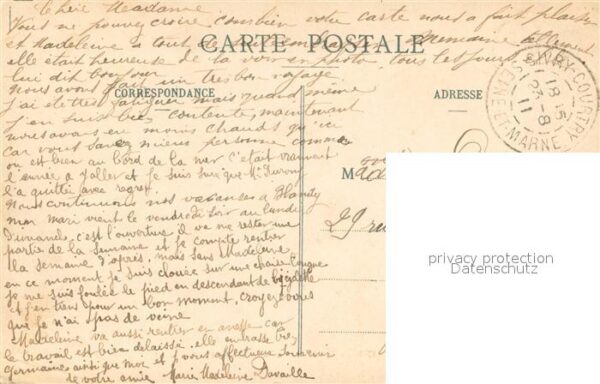 Chère Madame
Vous ne pouvez croire combien votre carte nous a fait plaisir
et Madeleine a tout
CARTE POSTALE
elle était heureuse de la voir en photo tous les jours
lui dit bonjour
Nous avons fait un très bon voyage
CORRESPONDANCE
ADRESSE
j'ai été très fatiguée mais quand même
j'en suis bien contente, maintenant
nous avons en moins chauds qu'ici
car vous savez mieux personne comme
on est bien au bord de la mer c'était vraiment
et je suis sure que Mr
l'a quittée avec regret.
Nous continuons nos vacances à
mon mari vient le vendredi soir au lundi
Dimanche c'est l'ouverture il va me rester une
partie de la semaine et je compte rentrer
la semaine d'après, mais sans Madeleine
en ce moment je suis clouée sur une chaise longue
je me suis foulée le pied en descendant de bicyclette
et j'en tiens pour un bon moment, croyez-vous
que je n'ai pas de veine
Madeleine va aussi rentrer en car
le travail est bien délaissé elle embrasse bien
Germaine ainsi que moi et vous affectueux souvenir
de votre amie Marie Madeleine Davaille
M
29 ru
EVRY-COUNTRY
18 15
22-8
11
SEINE ET MARNE
privacy protection
Datenschutz